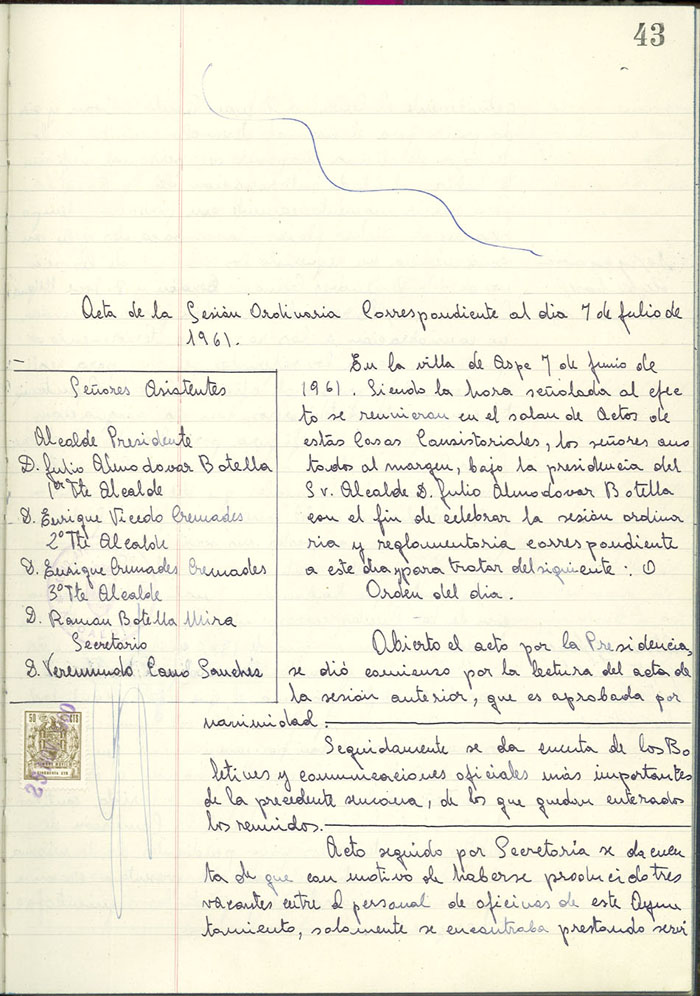 43
Acta de la Sesión Ordinaria Correspondiente al dia 7 de Julio de
1961.
Señores Asistentes
Alcalde Presidente
D. Julio Almodovar Botella
1er Tte Alcalde
D. Enrique Vicedo Cremades
2º Tte Alcalde
D. Enrique Cremades Cremades
3º Tte Alcalde
D. Ramon Botella Mira
Secretario
D. Veremundo Cano Sanchés
En la villa de Aspe 7 de Junio de
1961. Siendo la hora señalada al efec
to se reunieron en el salon de Actos de
estas Casas Consistoriales, los señores ano
tados al margen, bajo la presidencia del
Sr. Alcalde D. Julio Almodovar Botella
con el fin de celebrar la sesión ordina
ria y reglamentaria correspondiente
a este dia y para tratar del siguiente: O
Orden del dia.
Abierto el acto por la Presidencia,
se dió comienso por la lectura del acta de
la sesión anterior, que es aprobada por
nanimidad.
Seguidamente se da cuenta de los Bo
letives y comunicaciones oficiales más importantes
de la precedente semana, de los que quedan enterados
los reunidos.
Acto seguido por Secretaría se da cuen
ta de que con motivo de haberse producido tres
vacantes entre el personal de oficinas de este Ayun
tamiento, solamente se encontraba prestando servi
50 CTS